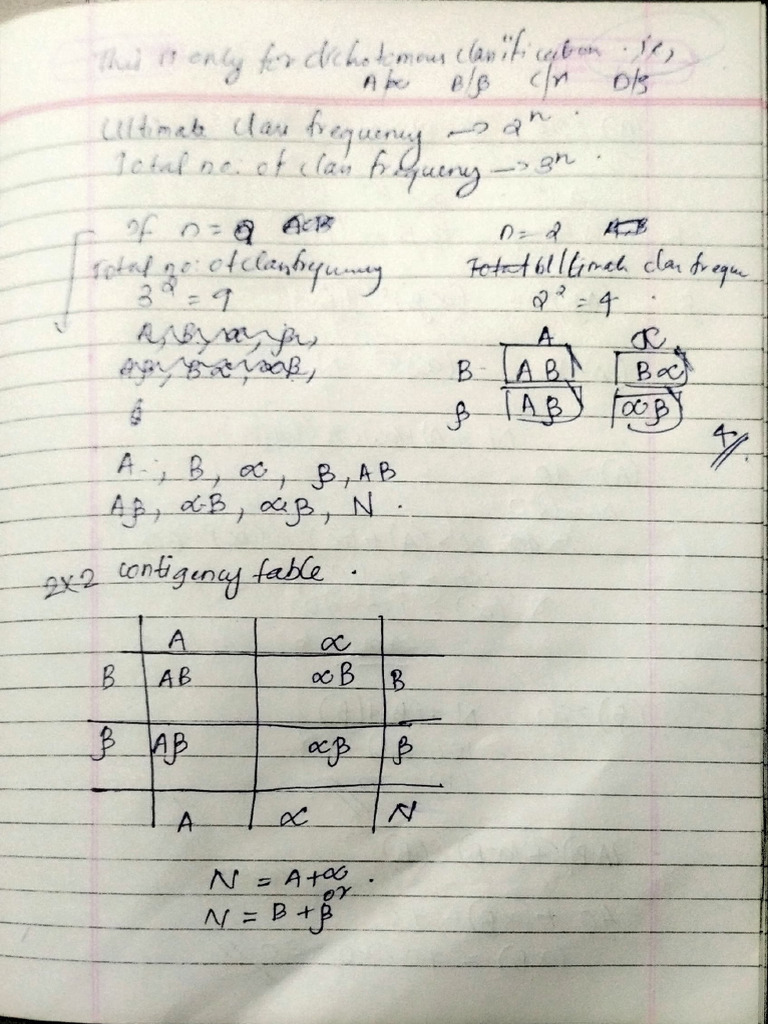 This is only for dichotomous classification. ie,
A/α B/β C/γ D/δ
Ultimate class frequency → 2ⁿ.
Total no: of class frequency → 3ⁿ.
If n = 2
Total no: of class frequency
3² = 9
A, B, α, β,
Aβ, Bα, αB,
n = 2
Total Ultimate class freque
2² = 4
A α
B AB Bα
β Aβ αβ
4//.
A, B, α, β, AB
Aβ, αB, αβ, N.
2x2 contigency table.
A α
B AB αB B
β Aβ αβ β
A α N
N = A+α.
or
N = B+β